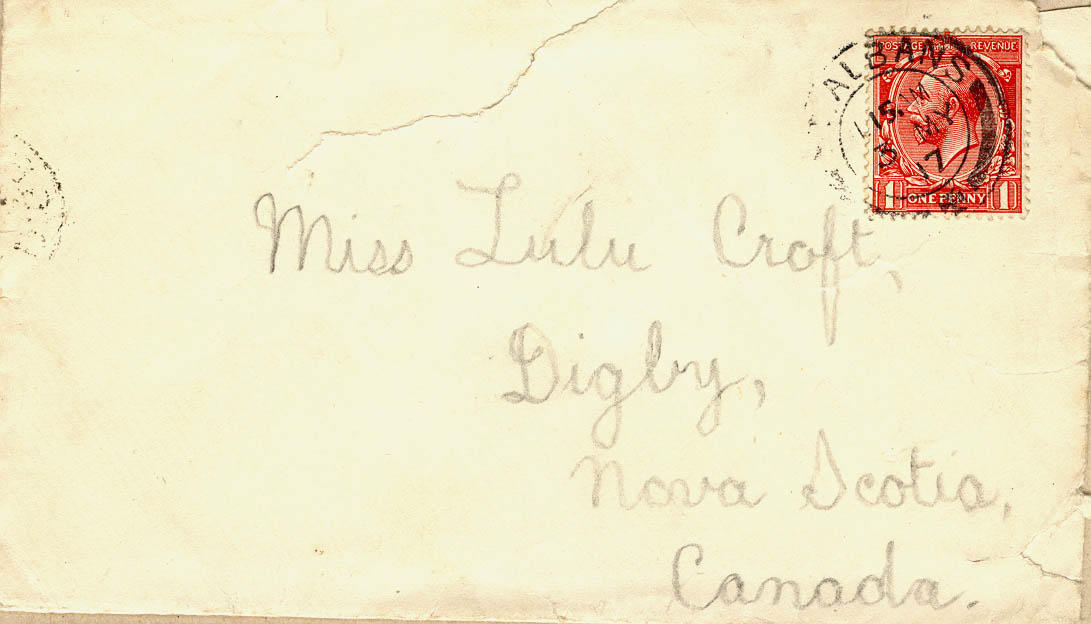 POSTAGE REVENUE
ALBANS
15 AM
3 MY
17
1 ONE PENNY 1
Miss Lulu Croft,
Digby,
Nova Scotia,
Canada.